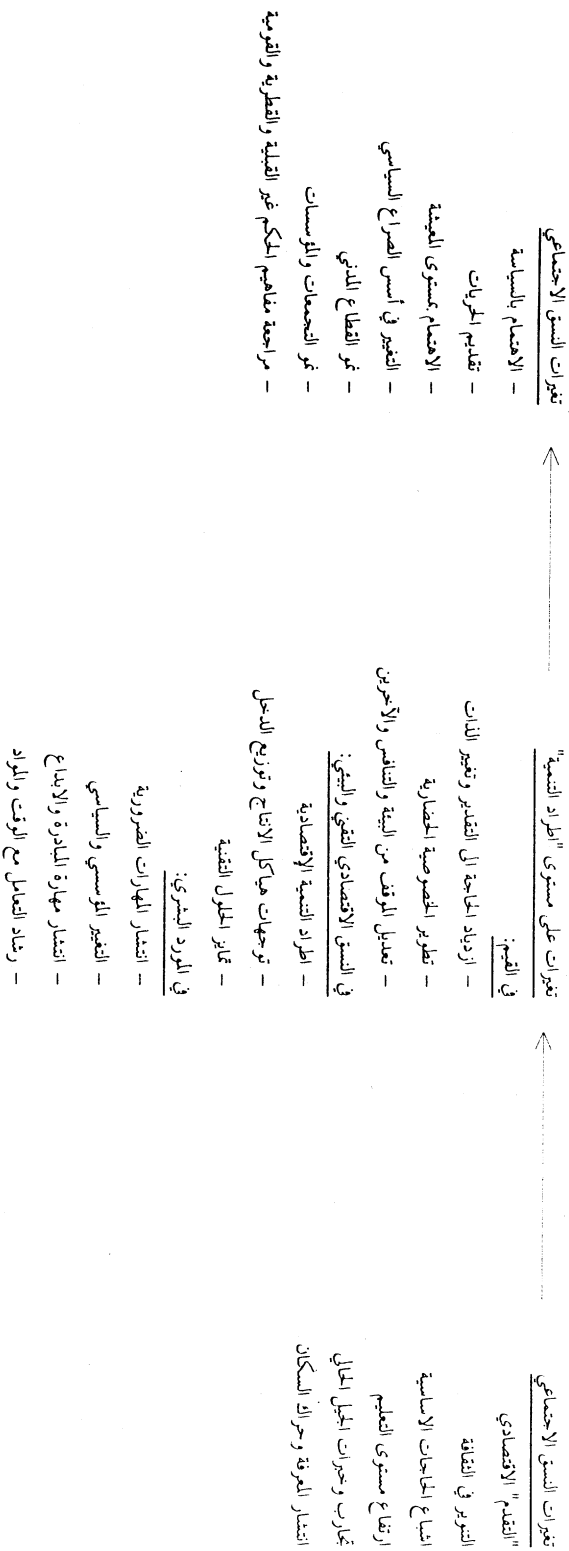 تغيرات النسق الاجتماعي
"التقدم" الاقتصادي
التنوير في الثقافة
اشباع الحاجات الاساسية
ارتفاع مستوى التعليم
تجارب وخبرات الجيل الحالي
انتشار المعرفة وحراك السكان
تغيرات على مستوى "اطراد التنمية"
في القيم:
– ازدياد الحاجة الى التقدير وتغيير الذات
– تطوير الخصوصية الحضارية
– تعديل الموقف من البيئة والتنافس والآخرين
في النسق الاقتصادي التقني والبيئي:
– اطراد التنمية الإقتصادية
– توجهات هياكل الانتاج وتوزيع الدخل
– تمايز الحلول التقنية
في المورد البشري:
– انتشار المهارات الضرورية
– التغيير المؤسسي والسياسي
– انتشار مهارة المبادرة والابداع
– رشاد التعامل مع الوقت والمواد
تغيرات النسق الاجتماعي
– الاهتمام بالسياسة
– تقديم الحريات
– الاهتمام بمستوى المعيشة
– التغيير في أسس الصراع السياسي
– نمو القطاع المدني
– نمو التجمعات والمؤسسات
– مراجعة مفاهيم الحكم غير القبلية والقطرية والقومية